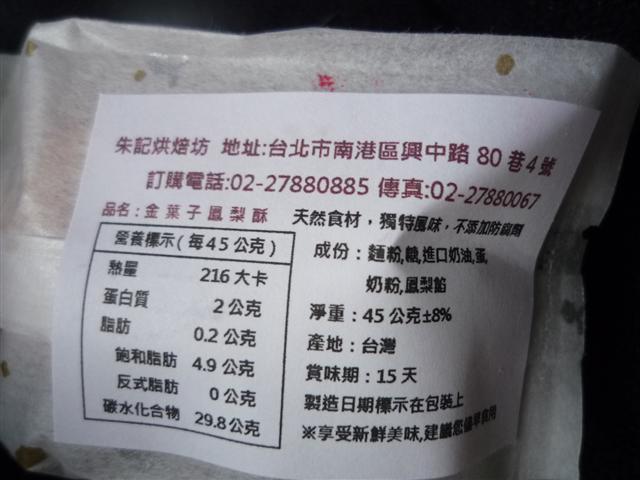 朱記烘焙坊 地址:台北市南港區興中路 80 巷4號
訂購電話:02-27880885 傳真:02-27880067
品名:金葉子鳳梨酥
天然食材,獨特風味,不添加防腐劑
營養標示(每45公克)
熱量 216大卡
蛋白質 2公克
脂肪 0.2公克
飽和脂肪 4.9公克
反式脂肪 0公克
碳水化合物 29.8公克
成份:麵粉,糖,進口奶油,蛋,
奶粉,鳳梨餡
淨重:45公克±8%
產地:台灣
賞味期:15天
製造日期標示在包裝上
※享受新鮮美味,建議您儘早食用